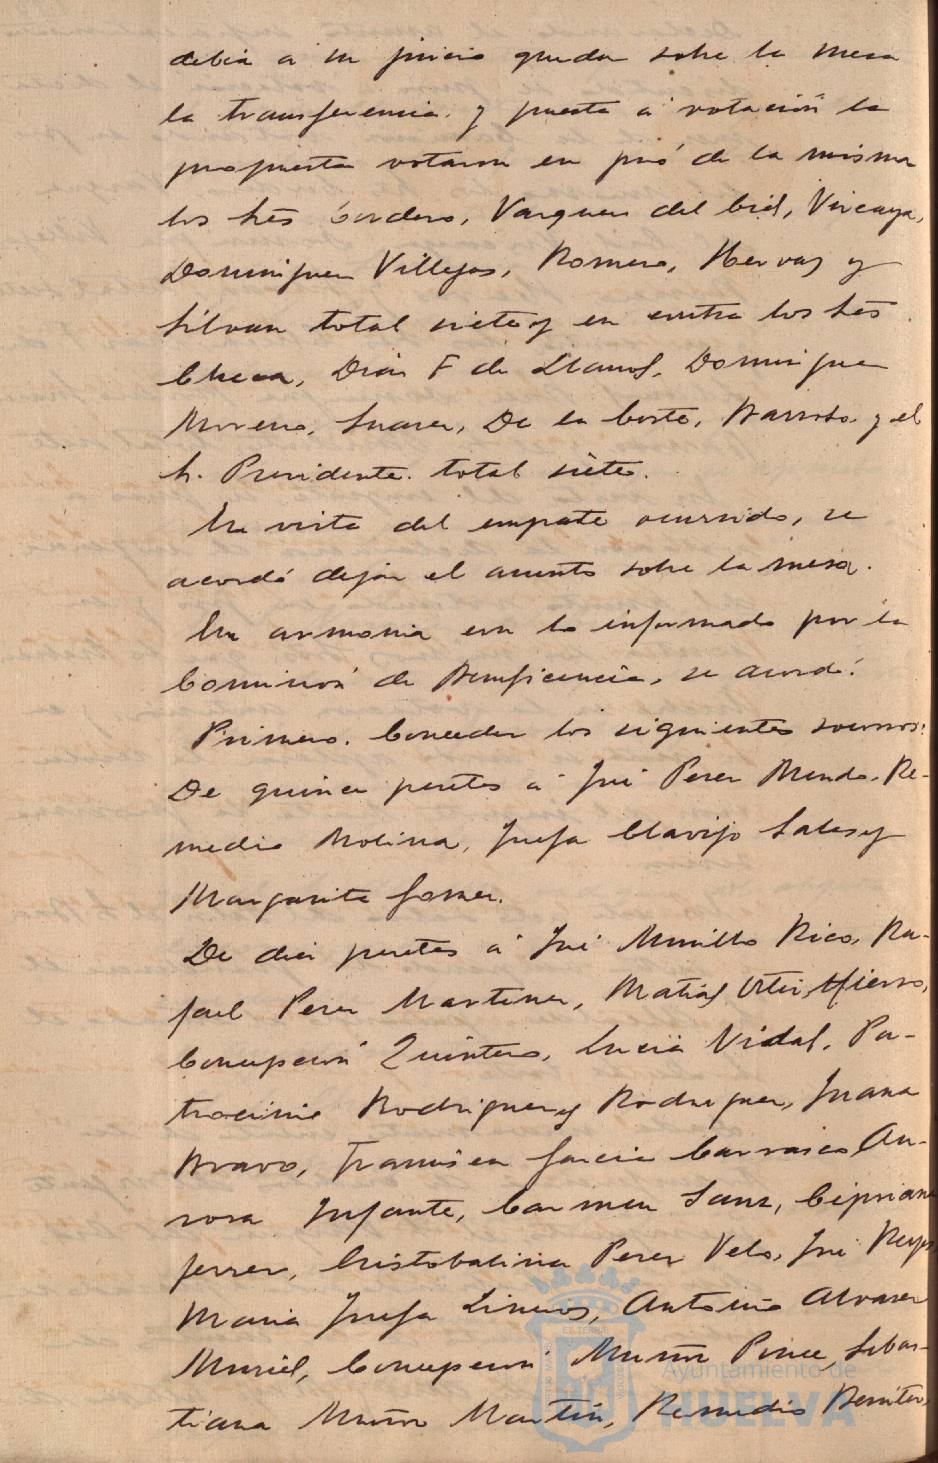 debia a su juicio quedar sobre la mesa
la transferencia. y puesta a votación la
propuesta votaron en pró de la misma
los Sres Cordero, Vazquez del Cid, Vizcaya,
Dominguez Villegas, Romero, Hervas y
Silvan total siete y en contra los Sres
Checa, Diaz F de Llanos, Dominguez
Moreno, Suarez, De la Corte, Barroso y el
S. Presidente. total siete.
En vista del empate ocurrido, se
acordó dejar el asunto sobre la mesa.
En armonia con lo informado por la
Comision de Beneficencia, se acordó:
Primero. Conceder los siguientes socorros:
De quince pesetas a José Perez Mendo, Re-
medio Molina, Josefa Clavijo Sales y
Margarita Gomez.
De diez pesetas a José Murillo Rico, Ra-
fael Perez Martinez, Matias Hierro,
Concepción Quintero, Lucia Vidal, Pa-
trocinio Rodriguez y Rodriguez, Juana
Bravo, Francisca Garcia Carrasco, Au-
rora Infante, Carmen Sanz, Cipriana
Ferrer, Cristobalina Perez Velo, José Reyes
Maria Josefa Lineros, Antonio Alvarez
Muriel, Concepcion Muñoz Ponce, Sebas-
tiana Muñoz Martin, Remedio Benitez,
Ayuntamiento de
HUELVA